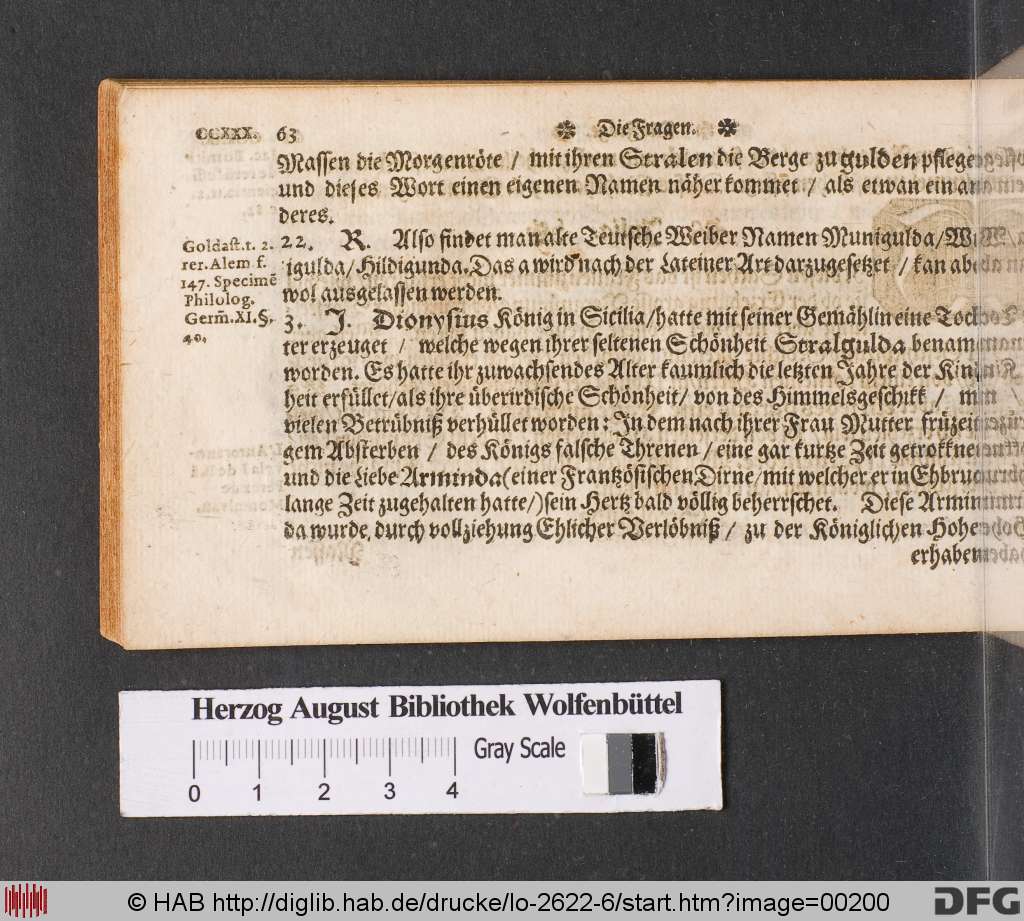 CCXXX. 63 Die Fragen.
Massen die Morgenröte / mit ihren Stralen die Berge zu gulden pflege
und dieses Wort einen eigenen Namen näher kommet / als etwan ein an
deres.
Goldast. t. 2.
rer. Alem f.
147. Specimē
Philolog.
Germ̄. XI. §.
40.
22. R. Also findet man alte Teutsche Weiber Namen Munigulda/
igulda/Hildigunda. Das a wird nach der Lateiner Art darzugesetzet / kan ab
wol ausgelassen werden.
3. J. Dionysius König in Sicilia/hatte mit seiner Gemählin eine Toch
ter erzeuget / welche wegen ihrer seltenen Schönheit Stralgulda benam
worden. Es hatte ihr zuwachsendes Alter kaumlich die letzten Jahre der Kin
heit erfüllet/als ihre überirdische Schönheit/ von des Himmelsgeschikk / mit
vielen Betrübniß verhüllet worden: In dem nach ihrer Frau Mutter früzeit
gem Absterben / des Königs falsche Threnen / eine gar kurtze Zeit getrokknet
und die Liebe Arminda (einer Frantzösischen Dirne/mit welcher er in Ehbruch
lange Zeit zugehalten hatte/) sein Hertz bald völlig beherrschet. Diese Armin
da wurde, durch vollziehung Ehlicher Verlöbniß / zu der Königlichen Hohe
erhaben
Herzog August Bibliothek Wolfenbüttel
Gray Scale
0 1 2 3 4
© HAB http://diglib.hab.de/drucke/lo-2622-6/start.htm?image=00200
DFG